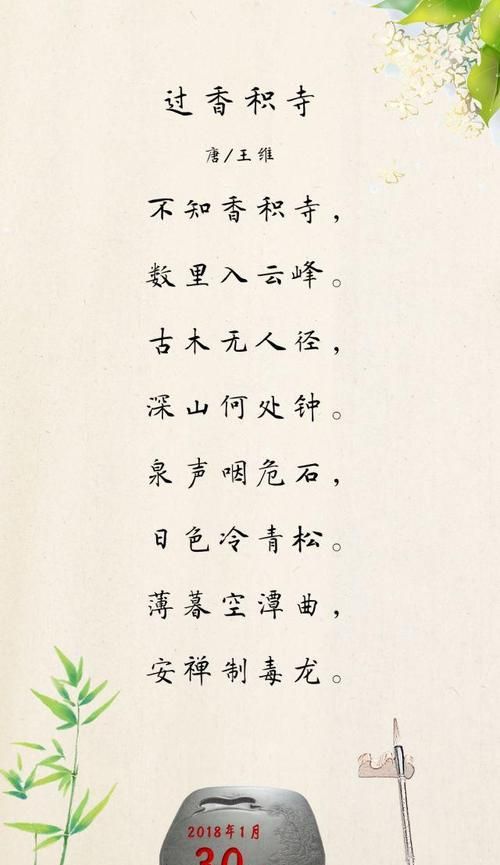 过香积寺
唐/王维
不知香积寺，
数里入云峰。
古木无人径，
深山何处钟。
泉声咽危石，
日色冷青松。
薄暮空潭曲，
安禅制毒龙。
2018年1月
30